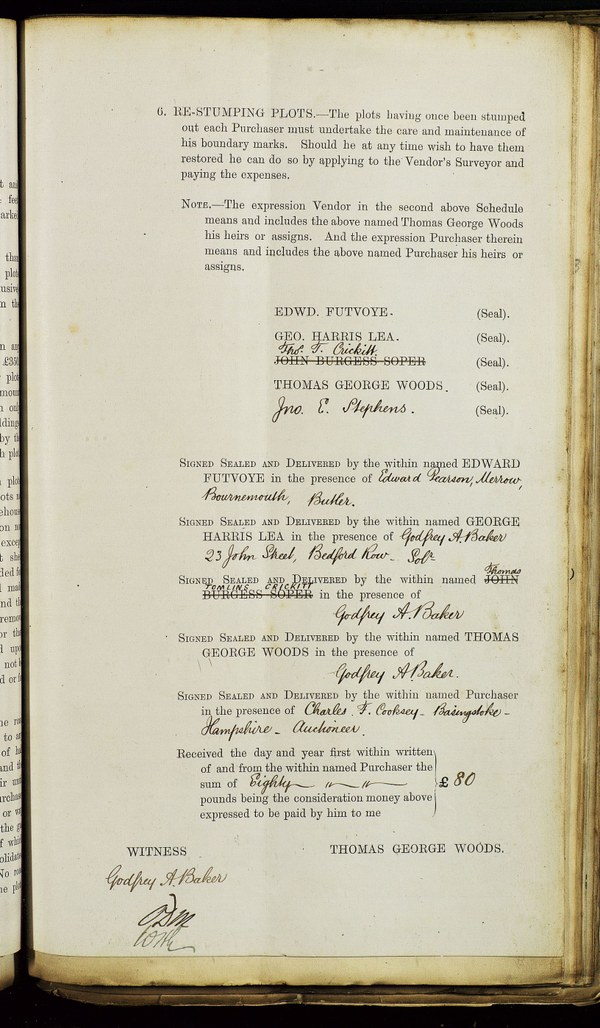 6. RE-STUMPING PLOTS.—The plots having once been stumped
out each Purchaser must undertake the care and maintenance of
his boundary marks. Should he at any time wish to have them
restored he can do so by applying to the Vendor's Surveyor and
paying the expenses.
NOTE.—The expression Vendor in the second above Schedule
means and includes the above named Thomas George Woods
his heirs or assigns. And the expression Purchaser therein
means and includes the above named Purchaser his heirs or
assigns.
EDWD. FUTVOYE. (Seal).
GEO. HARRIS LEA. (Seal).
Thos. T. Crickitt.
JOHN BURGESS SOPER (Seal).
THOMAS GEORGE WOODS. (Seal).
Jno. E. Stephens. (Seal).
SIGNED SEALED AND DELIVERED by the within named EDWARD
FUTVOYE in the presence of Edward Pearson, Merrow,
Bournemouth, Butler.
SIGNED SEALED AND DELIVERED by the within named GEORGE
HARRIS LEA in the presence of Godfrey A. Baker
23 John Street, Bedford Row. Solr
SIGNED SEALED AND DELIVERED by the within named Thomas JOHN
TOMLINS CRICKITT
BURGESS SOPER in the presence of
Godfrey A. Baker
SIGNED SEALED AND DELIVERED by the within named THOMAS
GEORGE WOODS in the presence of
Godfrey A. Baker.
SIGNED SEALED AND DELIVERED by the within named Purchaser
in the presence of Charles F. Cooksey - Basingstoke -
Hampshire - Auctioneer.
Received the day and year first within written
of and from the within named Purchaser the
sum of Eighty — " — " — £80
pounds being the consideration money above
expressed to be paid by him to me
WITNESS THOMAS GEORGE WOODS.
Godfrey A. Baker